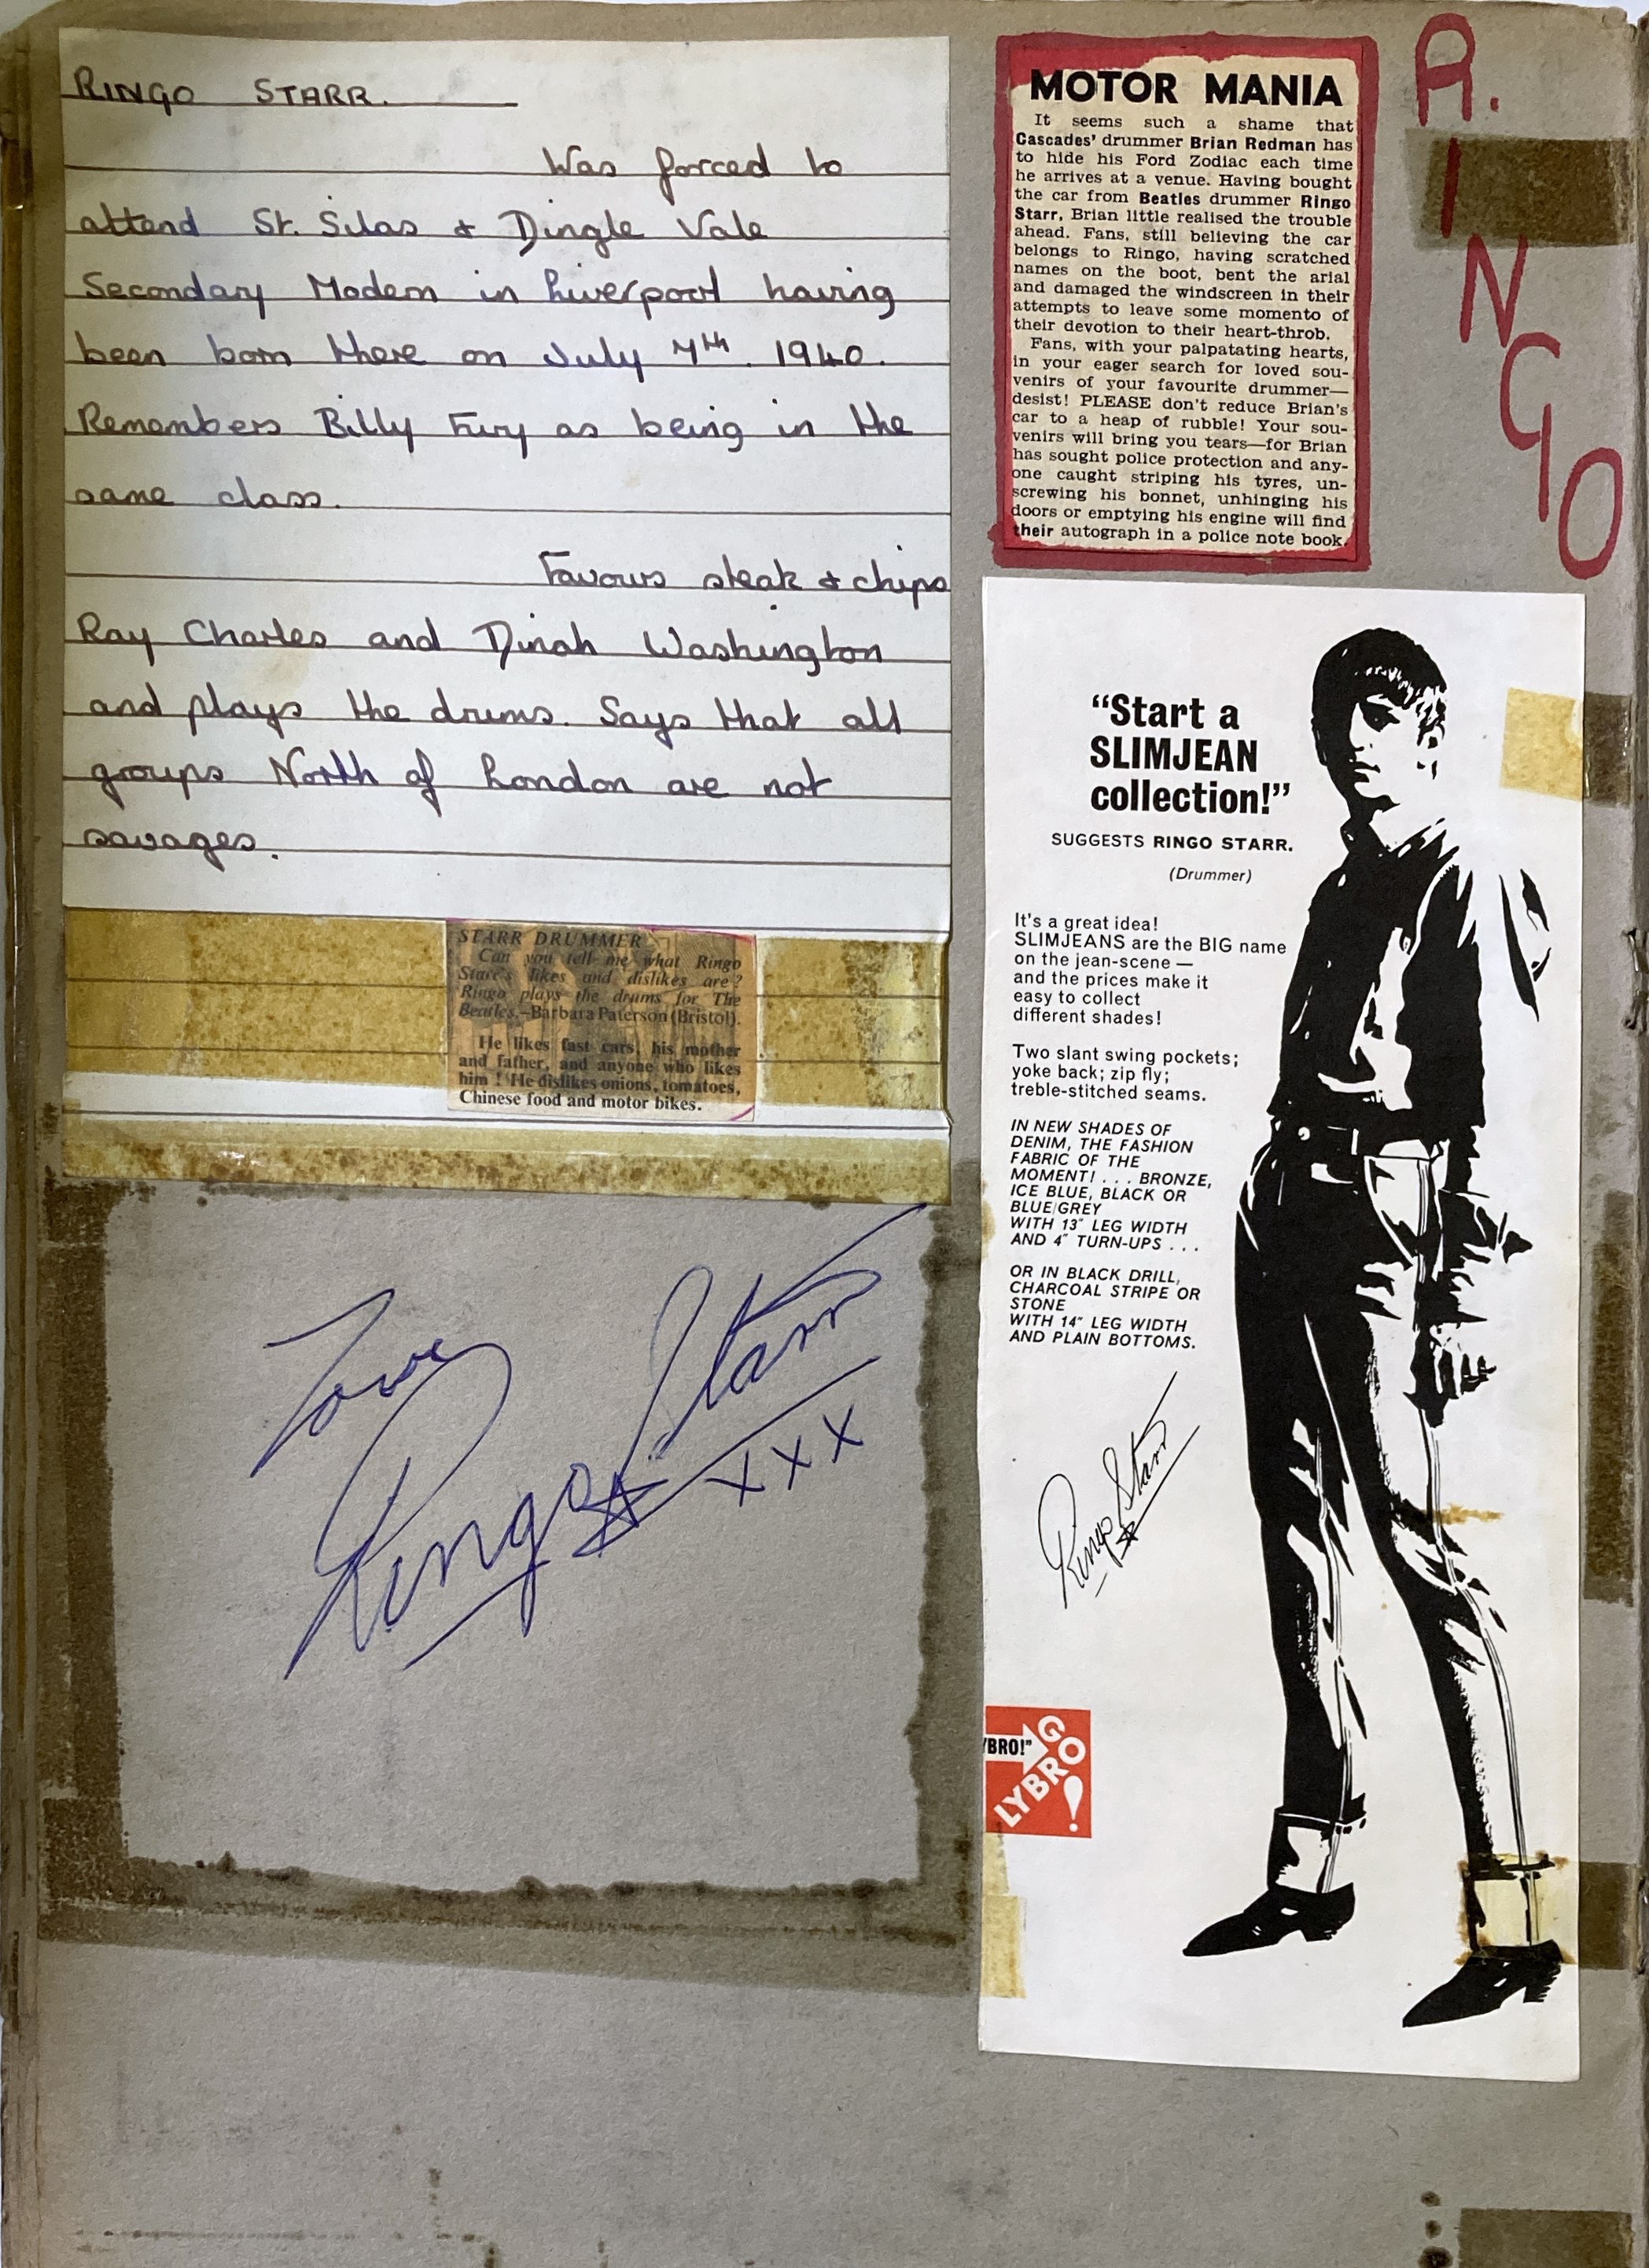 RINGO STARR.
Was forced to
attend St. Silas & Dingle Vale
Secondary Modern in Liverpool having
been born there on July 7th. 1940.
Remembers Billy Fury as being in the
same class.
Favours steak & chips
Ray Charles and Dinah Washington
and plays the drums. Says that all
groups North of London are not
savages.
STARR DRUMMER
Can you tell me what Ringo
Starr's likes and dislikes are?
Ringo plays the drums for The
Beatles.—Barbara Paterson (Bristol).
He likes fast cars, his mother
and father, and anyone who likes
him! He dislikes onions, tomatoes,
Chinese food and motor bikes.
Love
Ringo Starr
xxx
MOTOR MANIA
It seems such a shame that
Cascades' drummer Brian Redman has
to hide his Ford Zodiac each time
he arrives at a venue. Having bought
the car from Beatles drummer Ringo
Starr, Brian little realised the trouble
ahead. Fans, still believing the car
belongs to Ringo, having scratched
names on the boot, bent the arial
and damaged the windscreen in their
attempts to leave some momento of
their devotion to their heart-throb.
Fans, with your palpatating hearts,
in your eager search for loved sou-
venirs of your favourite drummer—
desist! PLEASE don't reduce Brian's
car to a heap of rubble! Your sou-
venirs will bring you tears—for Brian
has sought police protection and any-
one caught striping his tyres, un-
screwing his bonnet, unhinging his
doors or emptying his engine will find
their autograph in a police note book.
R.INGO
"Start a
SLIMJEAN
collection!"
SUGGESTS RINGO STARR.
(Drummer)
It's a great idea!
SLIMJEANS are the BIG name
on the jean-scene —
and the prices make it
easy to collect
different shades!
Two slant swing pockets;
yoke back; zip fly;
treble-stitched seams.
IN NEW SHADES OF
DENIM, THE FASHION
FABRIC OF THE
MOMENT! . . . BRONZE,
ICE BLUE, BLACK OR
BLUE/GREY
WITH 13" LEG WIDTH
AND 4" TURN-UPS . . .
OR IN BLACK DRILL,
CHARCOAL STRIPE OR
STONE
WITH 14" LEG WIDTH
AND PLAIN BOTTOMS.
Ringo Starr
YBRO!"
GO
LYBRO!